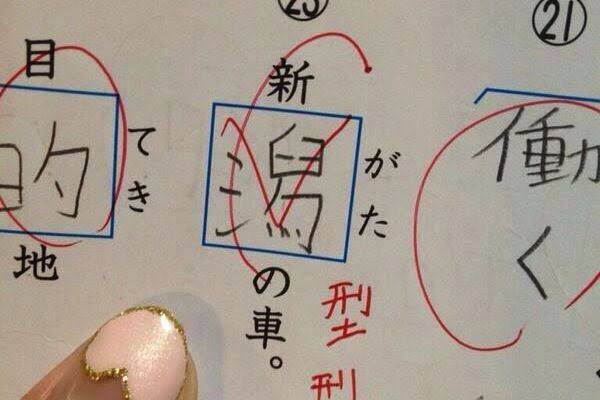 ㉑
働く
㉓
新潟の車。
がた
型
型
目的地
てき